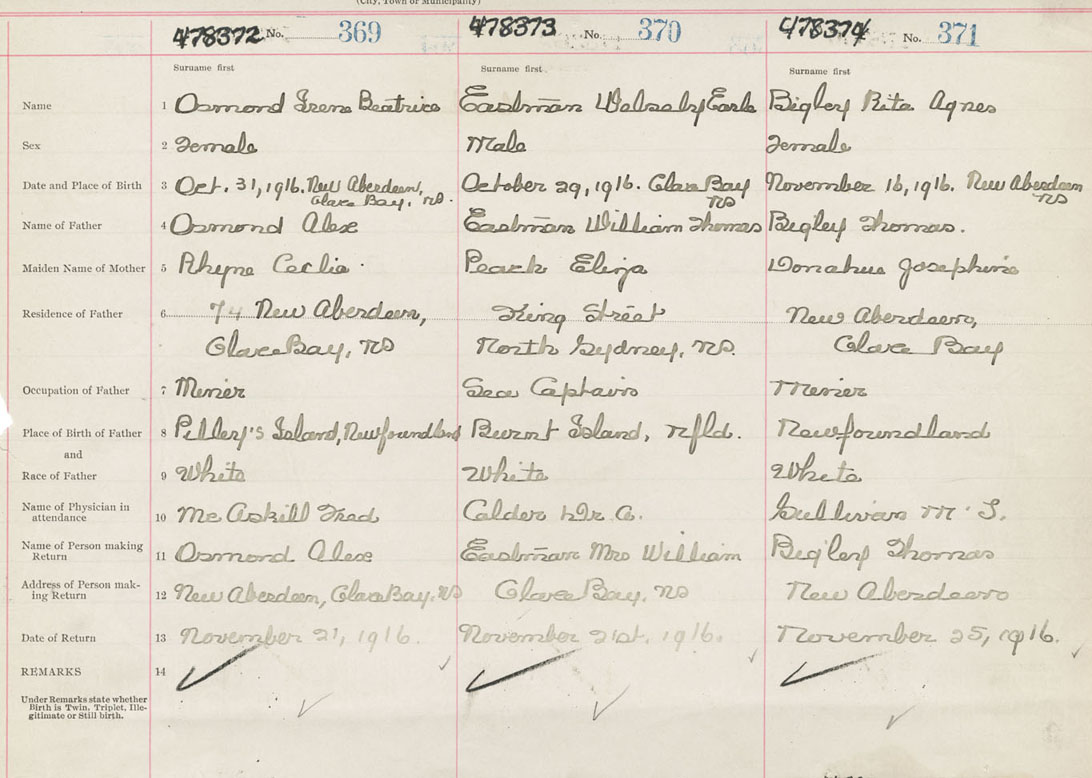 (City, Town or Municipality)
478372 No. 369 478373 No. 370 478374 No. 371
Surname first Surname first Surname first
Name 1 Osmond Irene Beatrice Eastman Earle Bigley Rita Agnes
Sex 2 Female Male Female
Date and Place of Birth 3 Oct. 31, 1916. New Aberdeen, October 29, 1916. Glace Bay November 16, 1916. New Aberdeen
Glace Bay, NS. NS NS
Name of Father 4 Osmond Alex Eastman William Thomas Bigley Thomas.
Maiden Name of Mother 5 Rhyne Ceclia Peach Eliza Donahue Josephine
Residence of Father 6 74 New Aberdeen, King Street New Aberdeen,
Glace Bay, NS North Sydney, NS. Glace Bay
Occupation of Father 7 Minier Sea Captain Minier
Place of Birth of Father 8 Pilley's Island, Newfoundland Burnt Island, Nfld. Newfoundland
and
Race of Father 9 White White White
Name of Physician in
attendance 10 Mc Askill Fred Calder Dr A. Sullivan M. S.
Name of Person making
Return 11 Osmond Alex Eastman Mrs William Bigley Thomas
Address of Person mak-
ing Return 12 New Aberdeen, Glace Bay. NS Glace Bay, NS New Aberdeen
Date of Return 13 November 21, 1916. November 21st, 1916. November 25, 1916.
REMARKS 14
Under Remarks state whether
Birth is Twin, Triplet, Ille-
gitimate or Still birth.